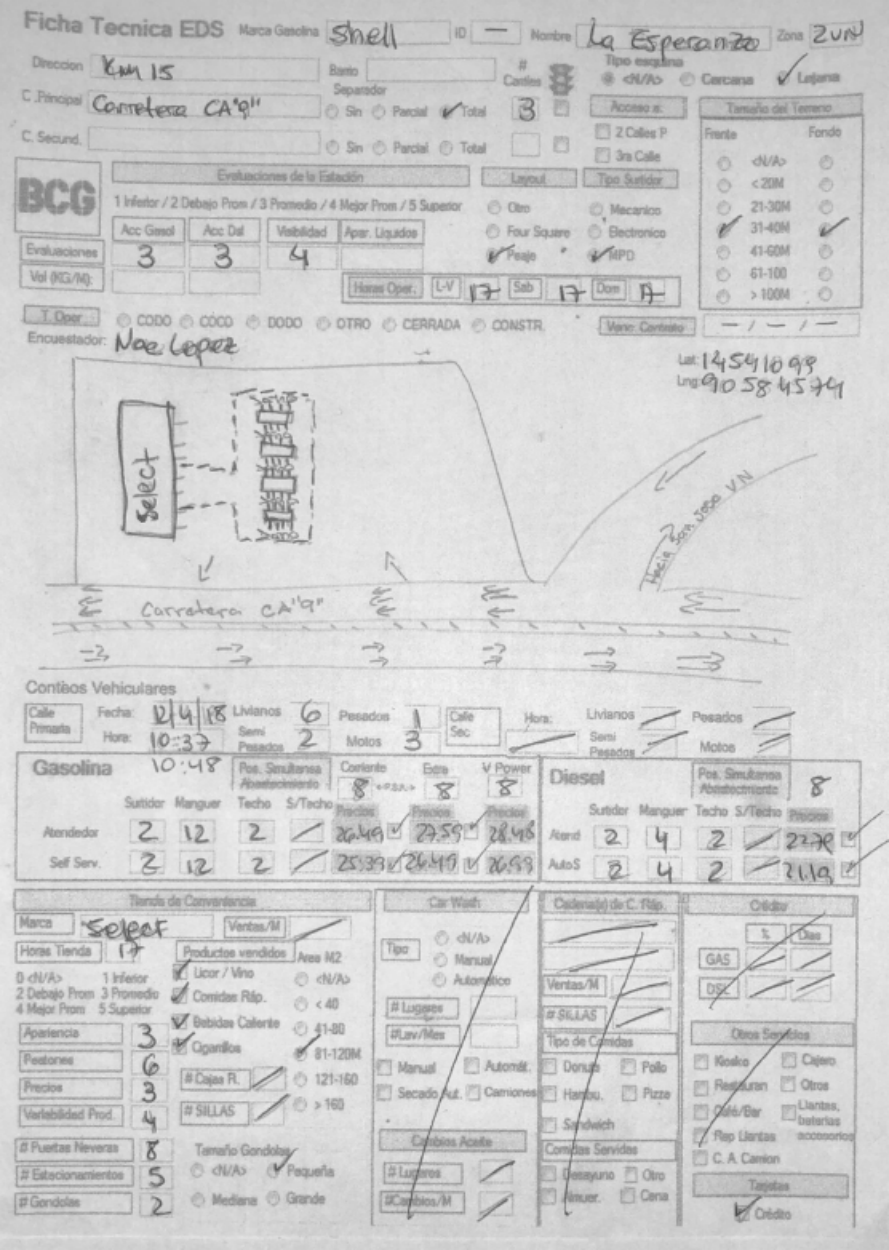 Ficha Tecnica EDS Marca Gasolina Shell ID — Nombre La Esperanza Zona ZUN
Direccion KM 15 Barrio # Carriles Tipo esquina <N/A> Cercana Lejana
C .Principal Carretera CA"9" Separador Sin Parcial Total 3 Acceso a: Tamaño del Terreno
C. Secund. Sin Parcial Total 2 Calles P 3ra Calle Frente Fondo
BCG Evaluaciones de la Estación Layout Tipo Surtidor <N/A>
1 Inferior / 2 Debajo Prom / 3 Promedio / 4 Mejor Prom / 5 Superior Otro Mecanico < 20M
Acc Gasol Acc Dsl Visibilidad Apar. Liquidos Four Square Electronico 21-30M
Evaluaciones 3 3 4 Peaje MPD 31-40M
41-60M
Vol (KG/M): Horas Oper. L-V 17 Sab 17 Dom 17 61-100
> 100M
T. Oper CODO COCO DODO OTRO CERRADA CONSTR. Venc. Contrato - / - / -
Encuestador: Noe Lopez
Lat: 14541099
Lng: 90584574
Select
Hacia San Jose V.N
Carretera CA"9"
Conteos Vehiculares
Calle Primaria Fecha: 12/4/18 Livianos 6 Pesados 1 Calle Sec Hora: Livianos Pesados
Hora: 10:37 Semi Pesados 2 Motos 3 Semi Pesados Motos
10:48
Gasolina Pos. Simultanea Abastecimiento Corriente 8 Extra 8 V Power 8 Diesel Pos. Simultanea Abastecimiento 8
Surtidor Manguer Techo S/Techo Precios Precios Precios Surtidor Manguer Techo S/Techo Precios
Atendedor 2 12 2 26.49 27.59 28.48 Atend 2 4 2 22.78
Self Serv. 2 12 2 25.39 26.49 26.99 AutoS 2 4 2 21.19
Tienda de Conveniencia Car Wash Cadena(s) de C. Ráp. Crédito
Marca Select Ventas/M <N/A> % Dias
Horas Tienda 17 Productos vendidos Area M2 Tipo Manual GAS
0 <N/A> 1 Inferior Licor / Vino <N/A> Automático Ventas/M DSL
2 Debajo Prom 3 Promedio Comidas Ráp. < 40 # Lugares # SILLAS
4 Mejor Prom 5 Superior Bebidas Caliente 41-80 #Lav/Mes Tipo de Comidas Otros Servicios
Apariencia 3 Cigarrillos 81-120M Manual Automát. Donuts Pollo Kiosko Cajero
Peatones 6 # Cajas R. 121-160 Secado Aut. Camiones Hambu. Pizza Restauran Otros
Precios 3 # SILLAS > 160 Sandwich Café/Bar Llantas, baterias accesorios
Variabilidad Prod. 4 Cambios Aceite Comidas Servidas Rep Llantas
# Puertas Neveras 8 Tamaño Gondolas # Lugares Desayuno Otro C. A. Camion
# Estacionamientos 5 <N/A> Pequeña #Cambios/M Almuer. Cena Tarjetas
# Gondolas 2 Mediana Grande Crédito